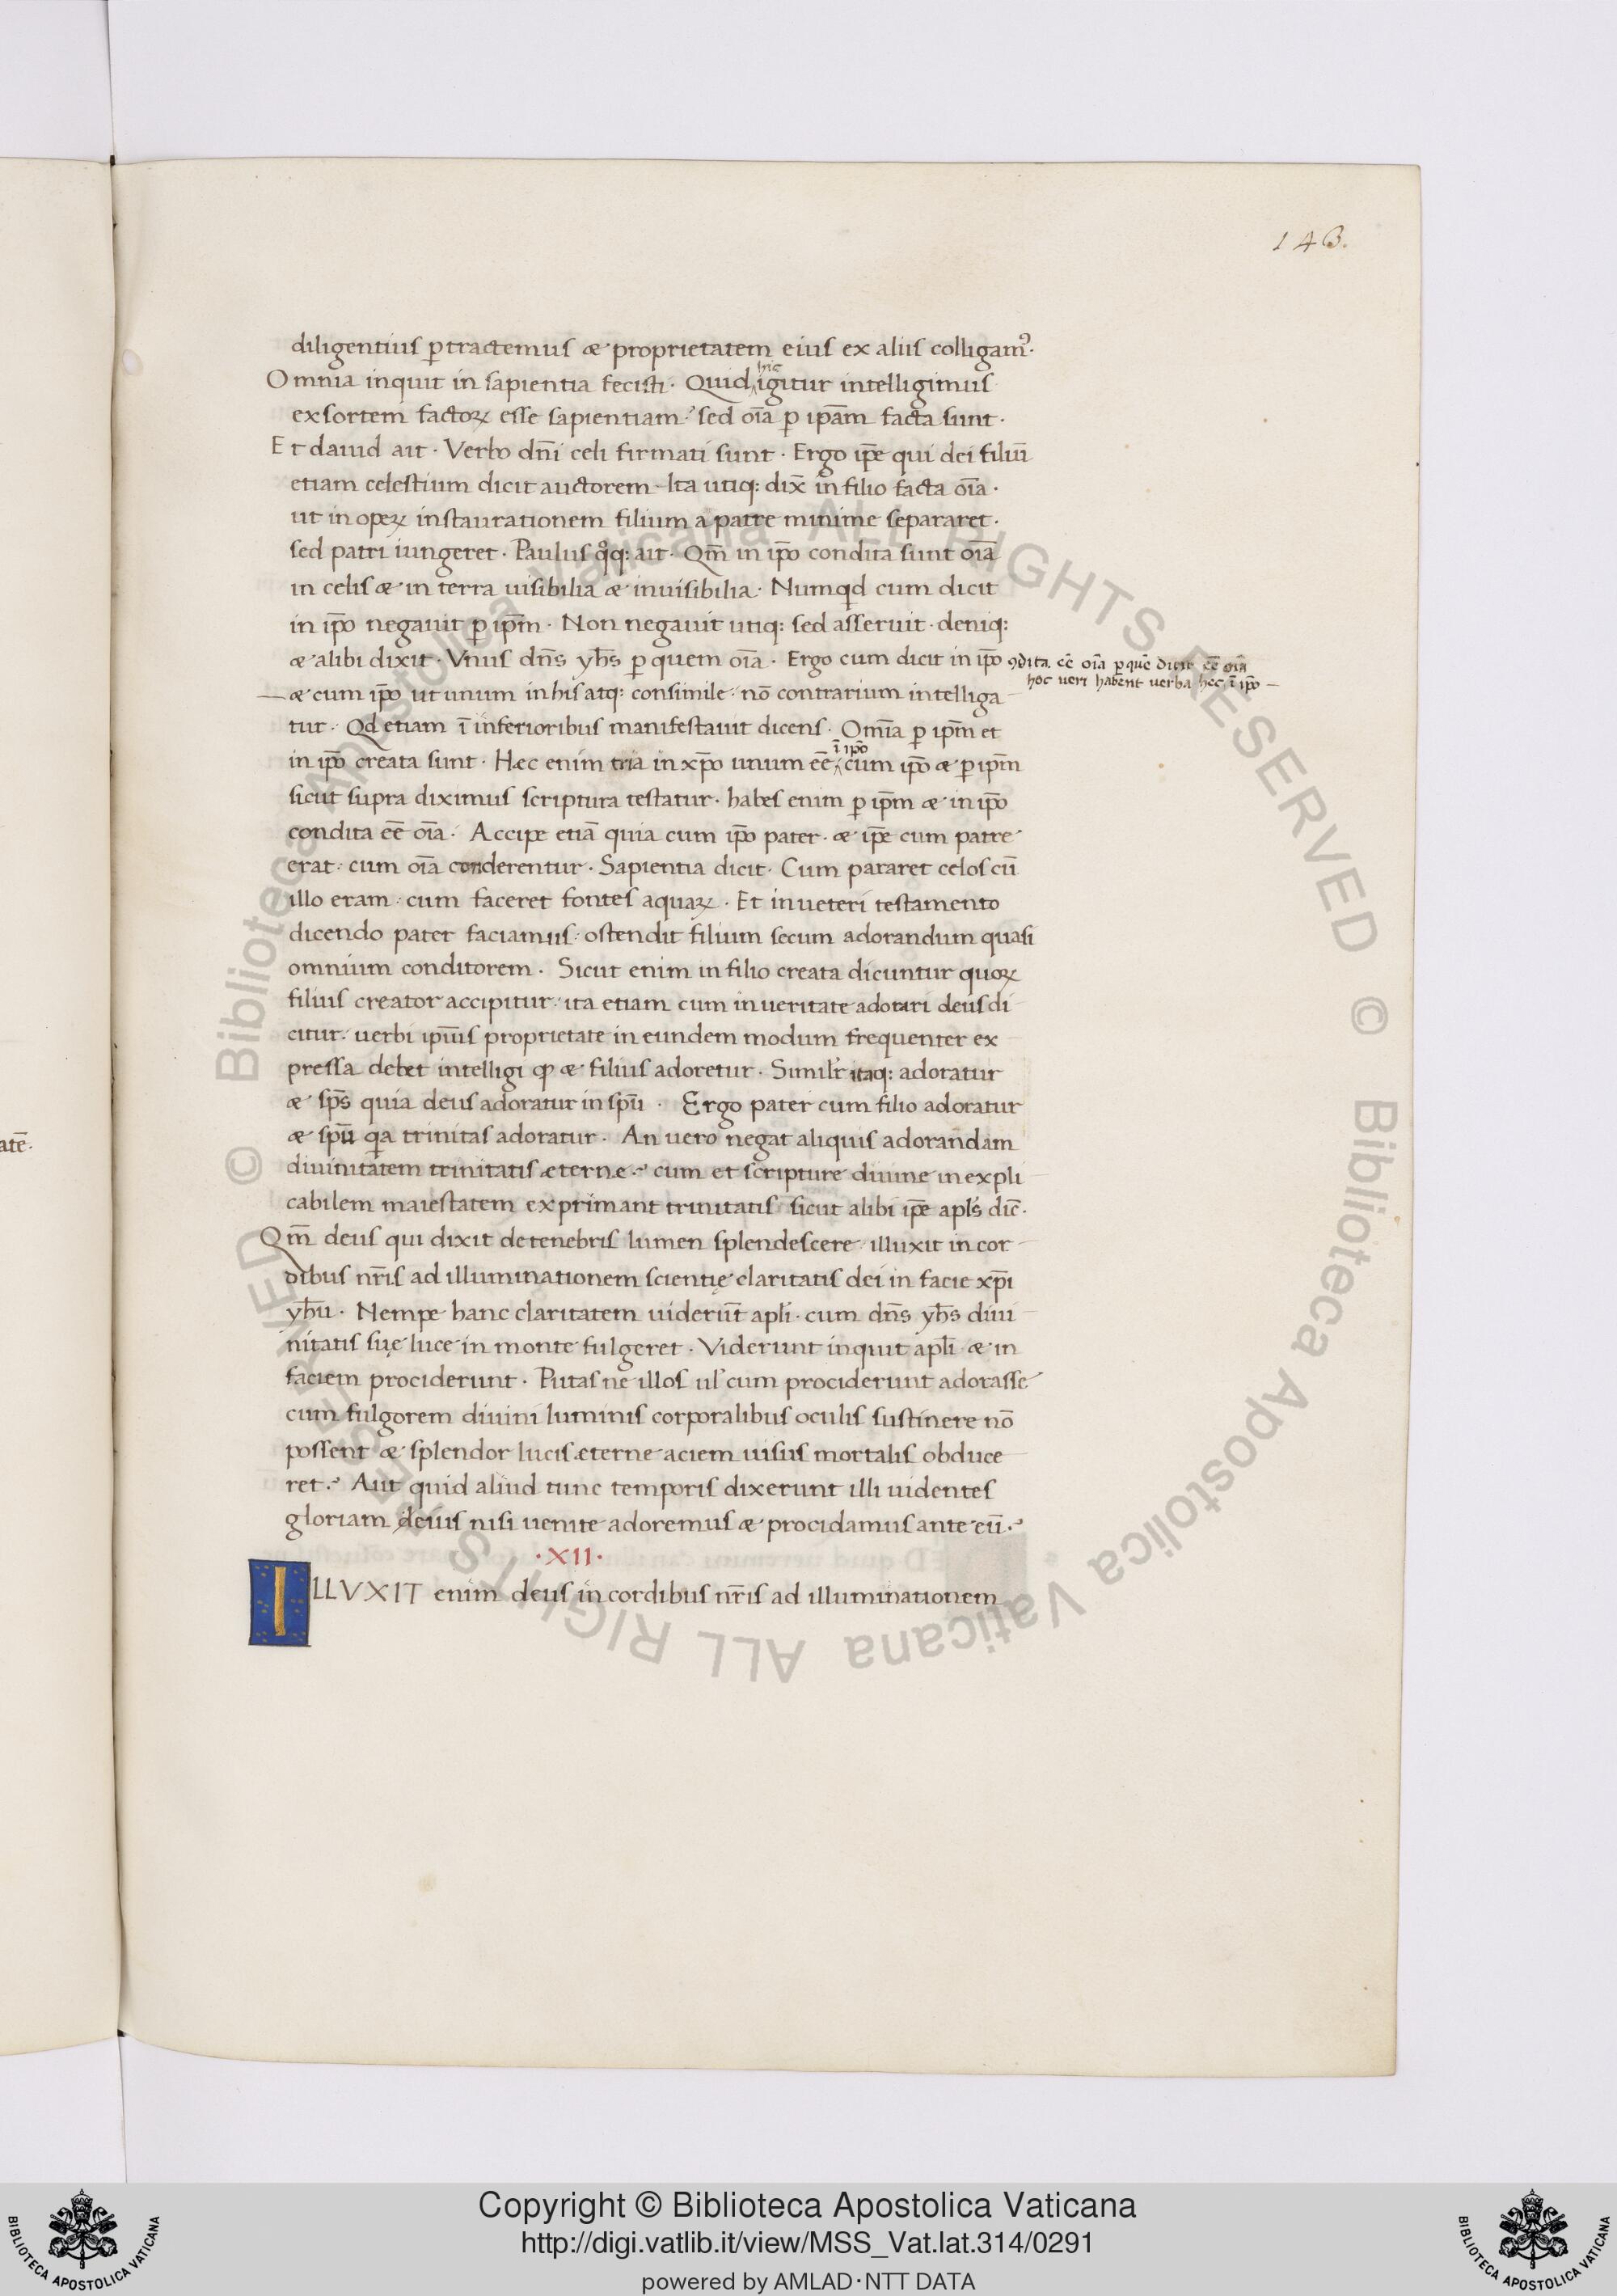 143.
diligentius ꝑtractemus æ proprietatem eius ex aliis colligamꝰ.
Omnia inquit in sapientia fecisti. Quid hic igitur intelligimus
exsortem factoꝝ esse sapientiam? sed oīa ꝑ ip̄am facta sunt.
Et dauid ait. Verbo dn̄i celi firmati sunt. Ergo ip̄e qui dei filiū
etiam celestium dicit auctorem. Ita utiq: dix̄ in filio facta oīa.
ut in opeꝝ instaurationem filium a patre minime separaret.
sed patri iungeret. Paulus qͦq: ait. Qm̄ in ip̄o condita sunt oīa
in celis æ in terra uisibilia æ inuisibilia. Numqͥd cum dicit
in ip̄o negauit ꝑ ip̄m. Non negauit utiq: sed asseruit. deniq:
æ alibi dixit. Vnus dn̄s yh̄s ꝑ quem oīa. Ergo cum dicit in ip̄o ꝯdita eē oīa ꝑ quē dicit eē oīa
hoc ueri habent uerba hec ī ip̄o
æ cum ip̄o ut unum in his atq: consimile. nō contrarium intelliga
tur. Qd etiam ī inferioribus manifestauit dicens. Omīa ꝑ ip̄m et
in ip̄o creata sunt. Hæc enim tria in xp̄o unum eē ī ip̄o cum ip̄o æ ꝑ ip̄m
sicut supra diximus scriptura testatur. habes enim ꝑ ip̄m æ in ip̄o
condita eē oīa. Accipe etiā quia cum ip̄o pater. æ ip̄e cum patre
erat. cum oīa conderentur. Sapientia dicit. Cum pararet celos cū
illo eram. cum faceret fontes aquaꝝ. Et in ueteri testamento
dicendo pater faciamus. ostendit filium secum adorandum quasi
omnium conditorem. Sicut enim in filio creata dicuntur quoꝝ
filius creator accipitur. ita etiam cum in ueritate adorari deus di
citur. uerbi ipīus proprietate in eundem modum frequenter ex
pressa debet intelligi ꝙ æ filius adoretur. Similr̄ itaq: adoratur
æ sp̄s quia deus adoratur in spū. Ergo pater cum filio adoratur
æ spū qͥa trinitas adoratur. An uero negat aliquis adorandam
diuinitatem trinitatis æterne? cum et scripture diuine inexpli
cabilem maiestatem exprimant trinitatis sicut alibi ip̄e apl̄s dic̄.
Qm̄ deus qui dixit de tenebris lumen splendescere. illuxit in cor
dibus nr̄is ad illuminationem scientię claritatis dei in facie xp̄i
yh̄u. Nempe hanc claritatem uiderūt apl̄i. cum dn̄s yh̄s diui
nitatis suę luce in monte fulgeret. Viderunt inquit apl̄i æ in
faciem prociderunt. Putas ne illos ul̄ cum prociderunt adorasse
cum fulgorem diuini luminis corporalibus oculis sustinere nō
possent æ splendor lucis æterne aciem uisus mortalis obduce
ret? Aut quid aliud tunc temporis dixerunt illi uidentes
gloriam deius nisi uenite adoremus æ procidamus ante eū?
.XII.
ILLVXIT enim deus in cordibus nr̄is ad illuminationem
atē.
© Biblioteca Apostolica Vaticana ALL RIGHTS RESERVED © Biblioteca Apostolica Vaticana ALL RIGHTS RESERVED
Copyright © Biblioteca Apostolica Vaticana
http://digi.vatlib.it/view/MSS_Vat.lat.314/0291
powered by AMLAD·NTT DATA
BIBLIOTECA APOSTOLICA VATICANA
BIBLIOTECA APOSTOLICA VATICANA